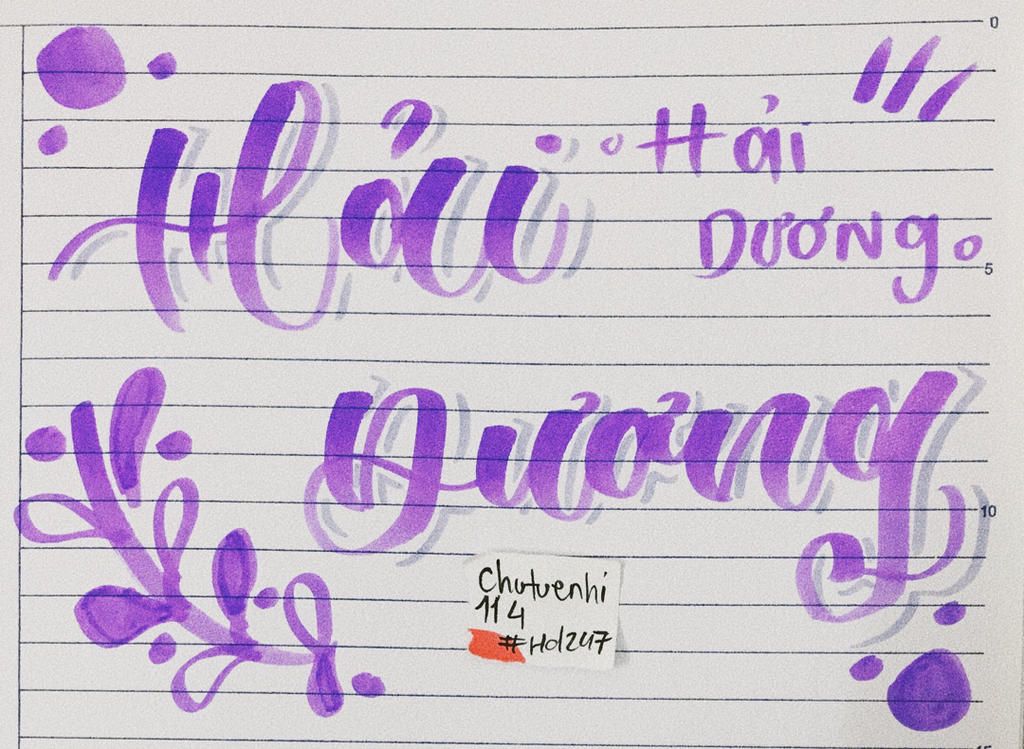 Hải
Hải
DƯƠNg
Dương
Chutuenhi
114
#Hd247
0
5
10